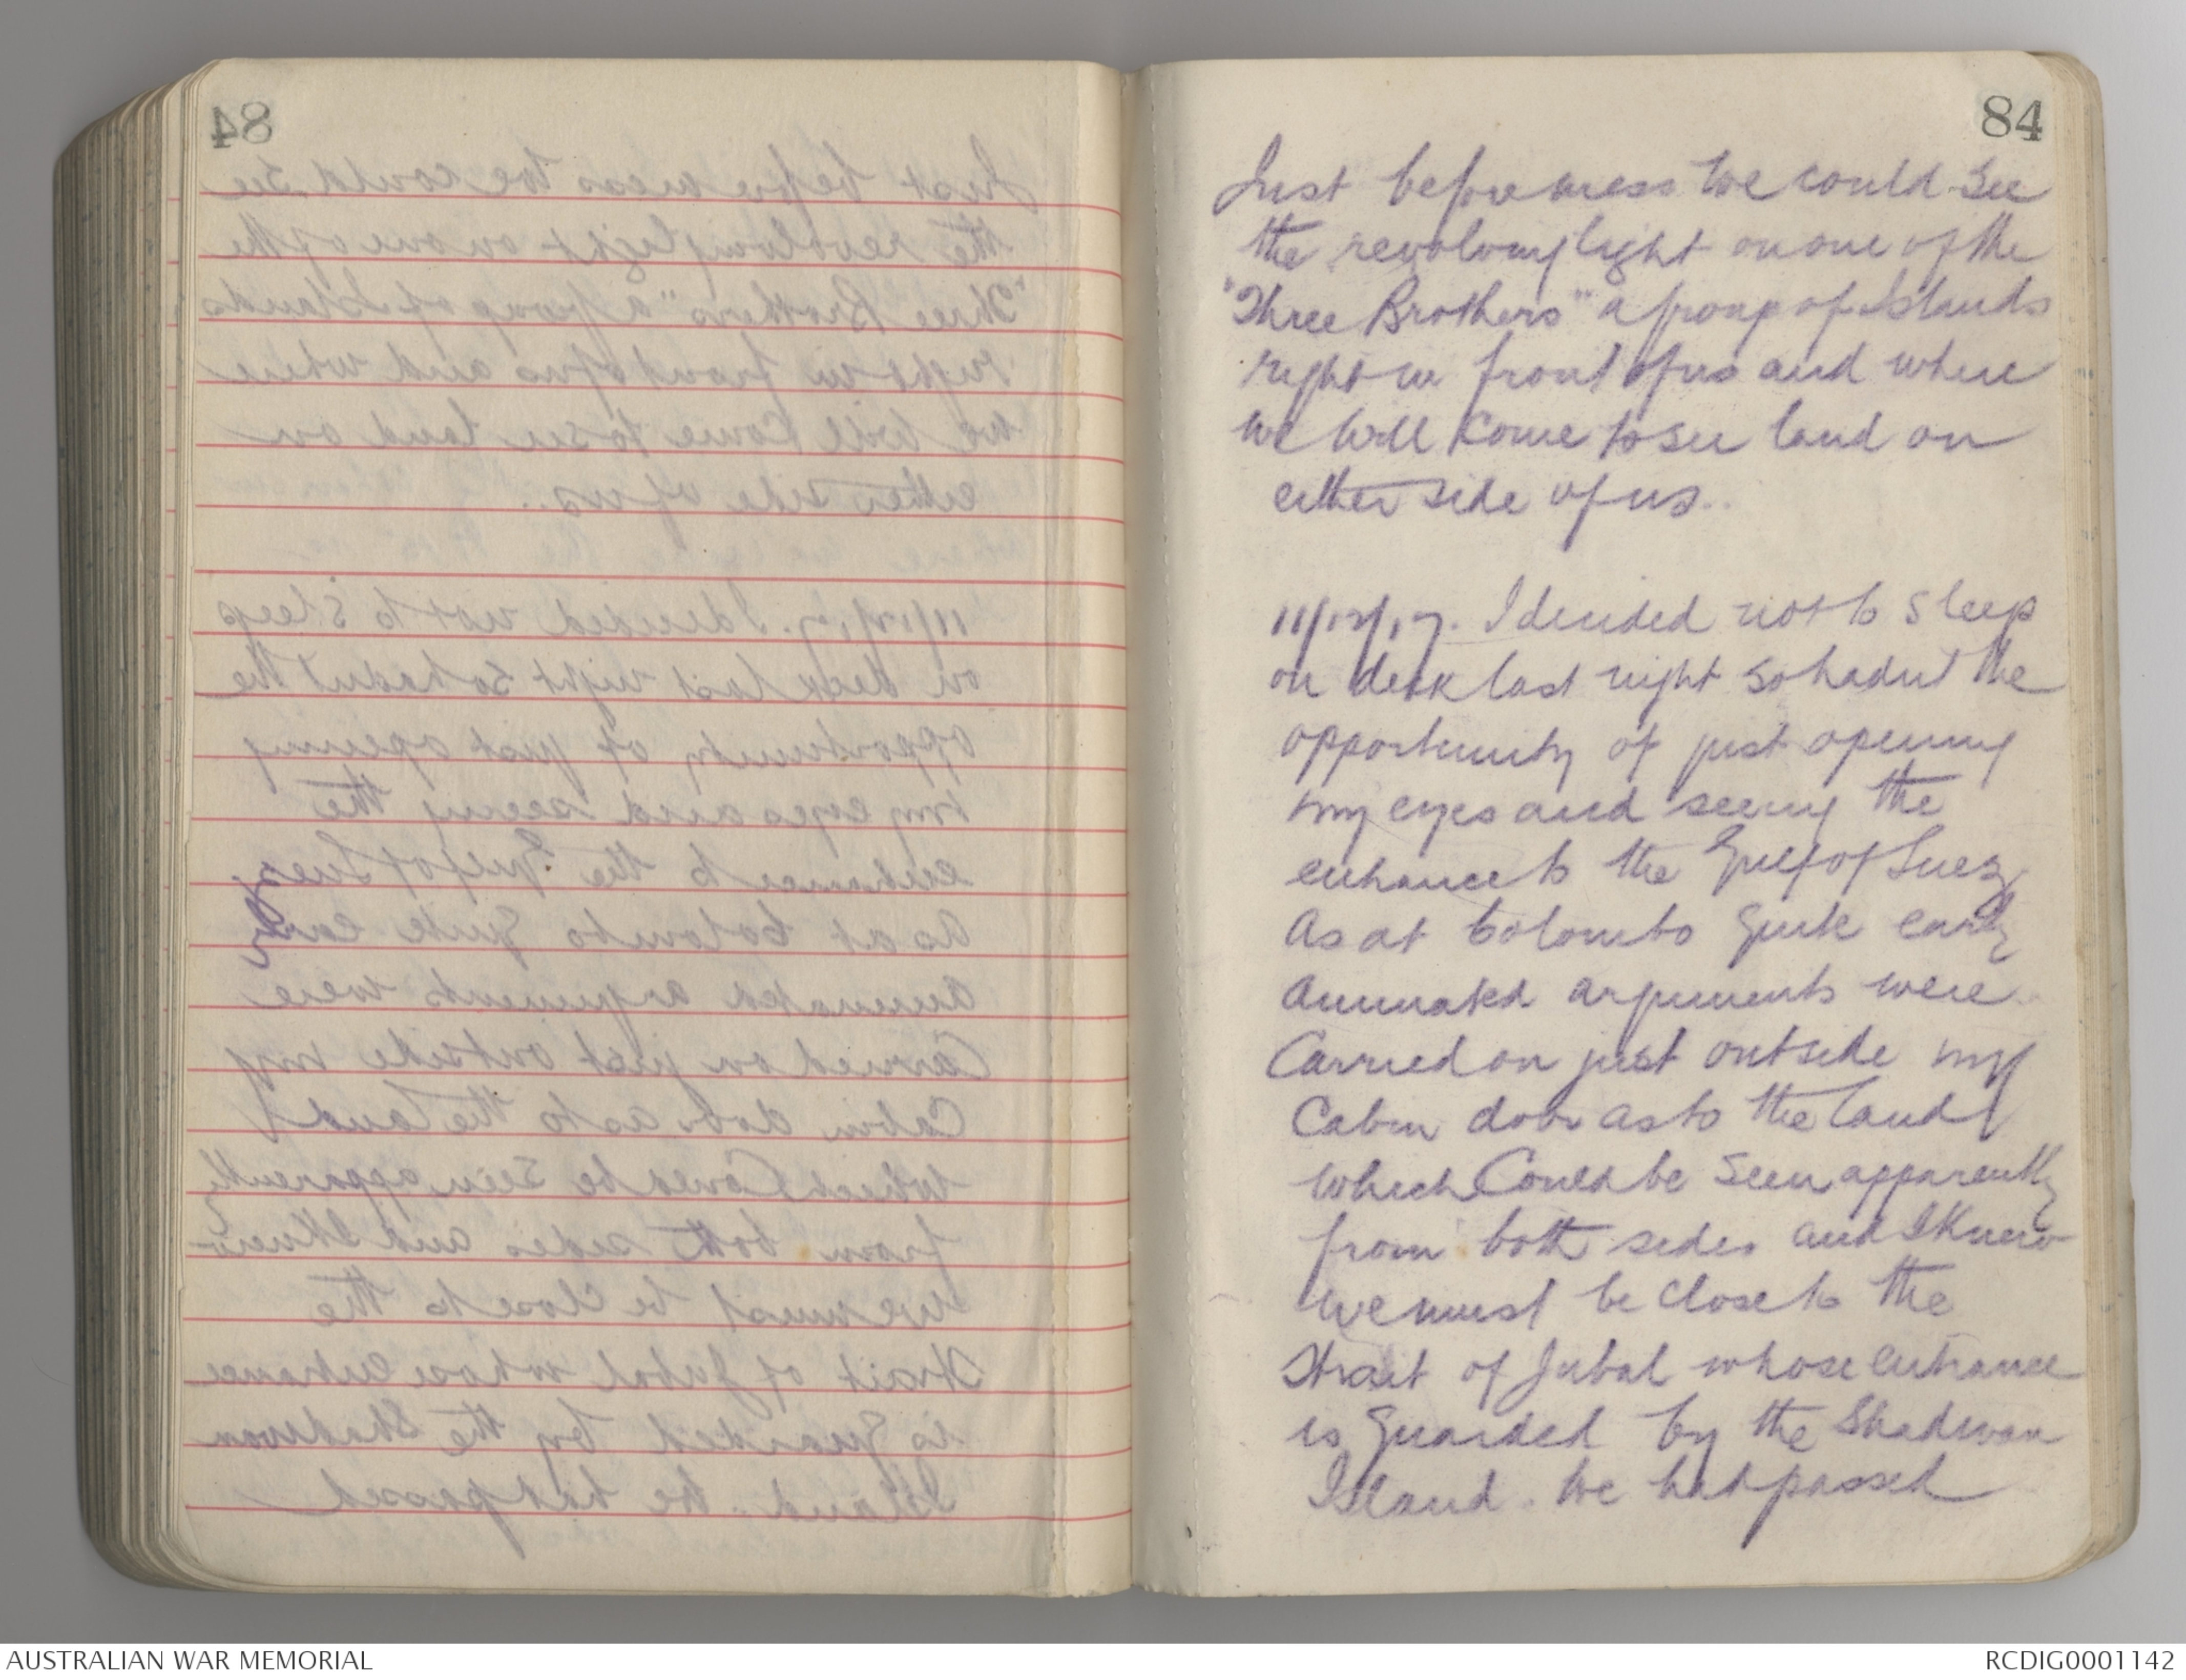 84
Just before mess we could see
the revolving light on one of the
"Three Brothers" a group of Islands
right in front of us and where
we will come to see land on
either side of us..
11/12/17. I decided not to sleep
on deck last night so hadnt the
opportunity of just opening
my eyes and seeing the
entrance to the Gulf of Suez
As at Colombo Quite early
animated arguments were
Carried on just outside my
Cabin door as to the land
which Could be seen apparently
from both sides and I Knew
we must be close to the
Strait of Jubal whose entrance
is Guarded by the Shadwan
Island. We had passed
AUSTRALIAN WAR MEMORIAL
RCDIG0001142